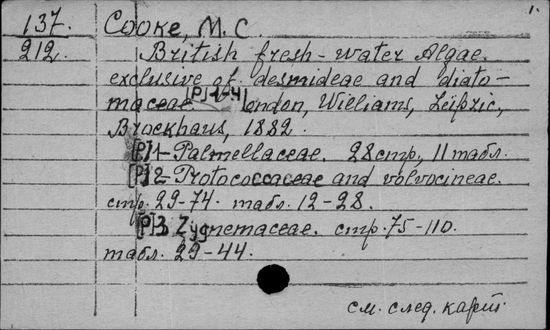 1.
137. Cooke, M. C.
212. British fresh-water Algae.
exclusive of desmideae and diato-
maceae. [P] 1-4 London, Williams, Leipzic,
Brockhaus, 1882.
[P] 1-Palmellaceae. 28 стр., 11 табл.
[P] 2-Protococcaceae and volvocineae.
стр. 29-74. табл. 12-28.
[P] 3. Zygnemaceae. стр. 75-110.
табл. 29-44.
см. след. карт.